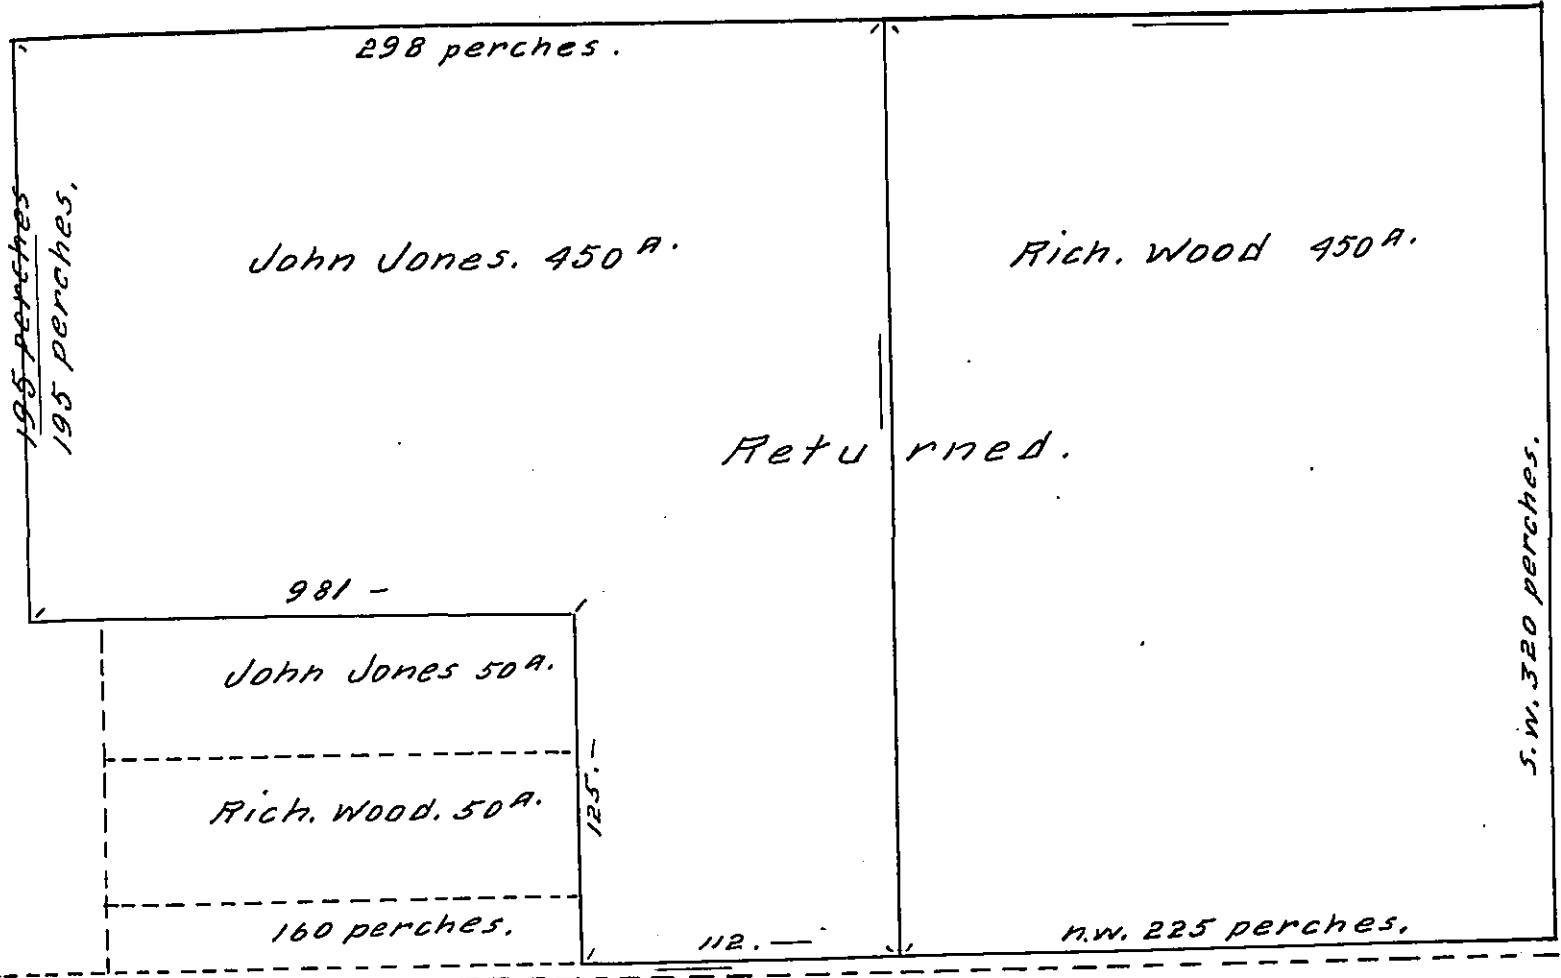 298 perches.
195 perches
195 perches.
John Jones. 450 A.
Rich. Wood 450 A.
Returned.
S.W. 320 perches.
981 -
John Jones 50 A.
Rich. Wood. 50 A.
125. -
160 perches.
112. —
n.w. 225 perches.